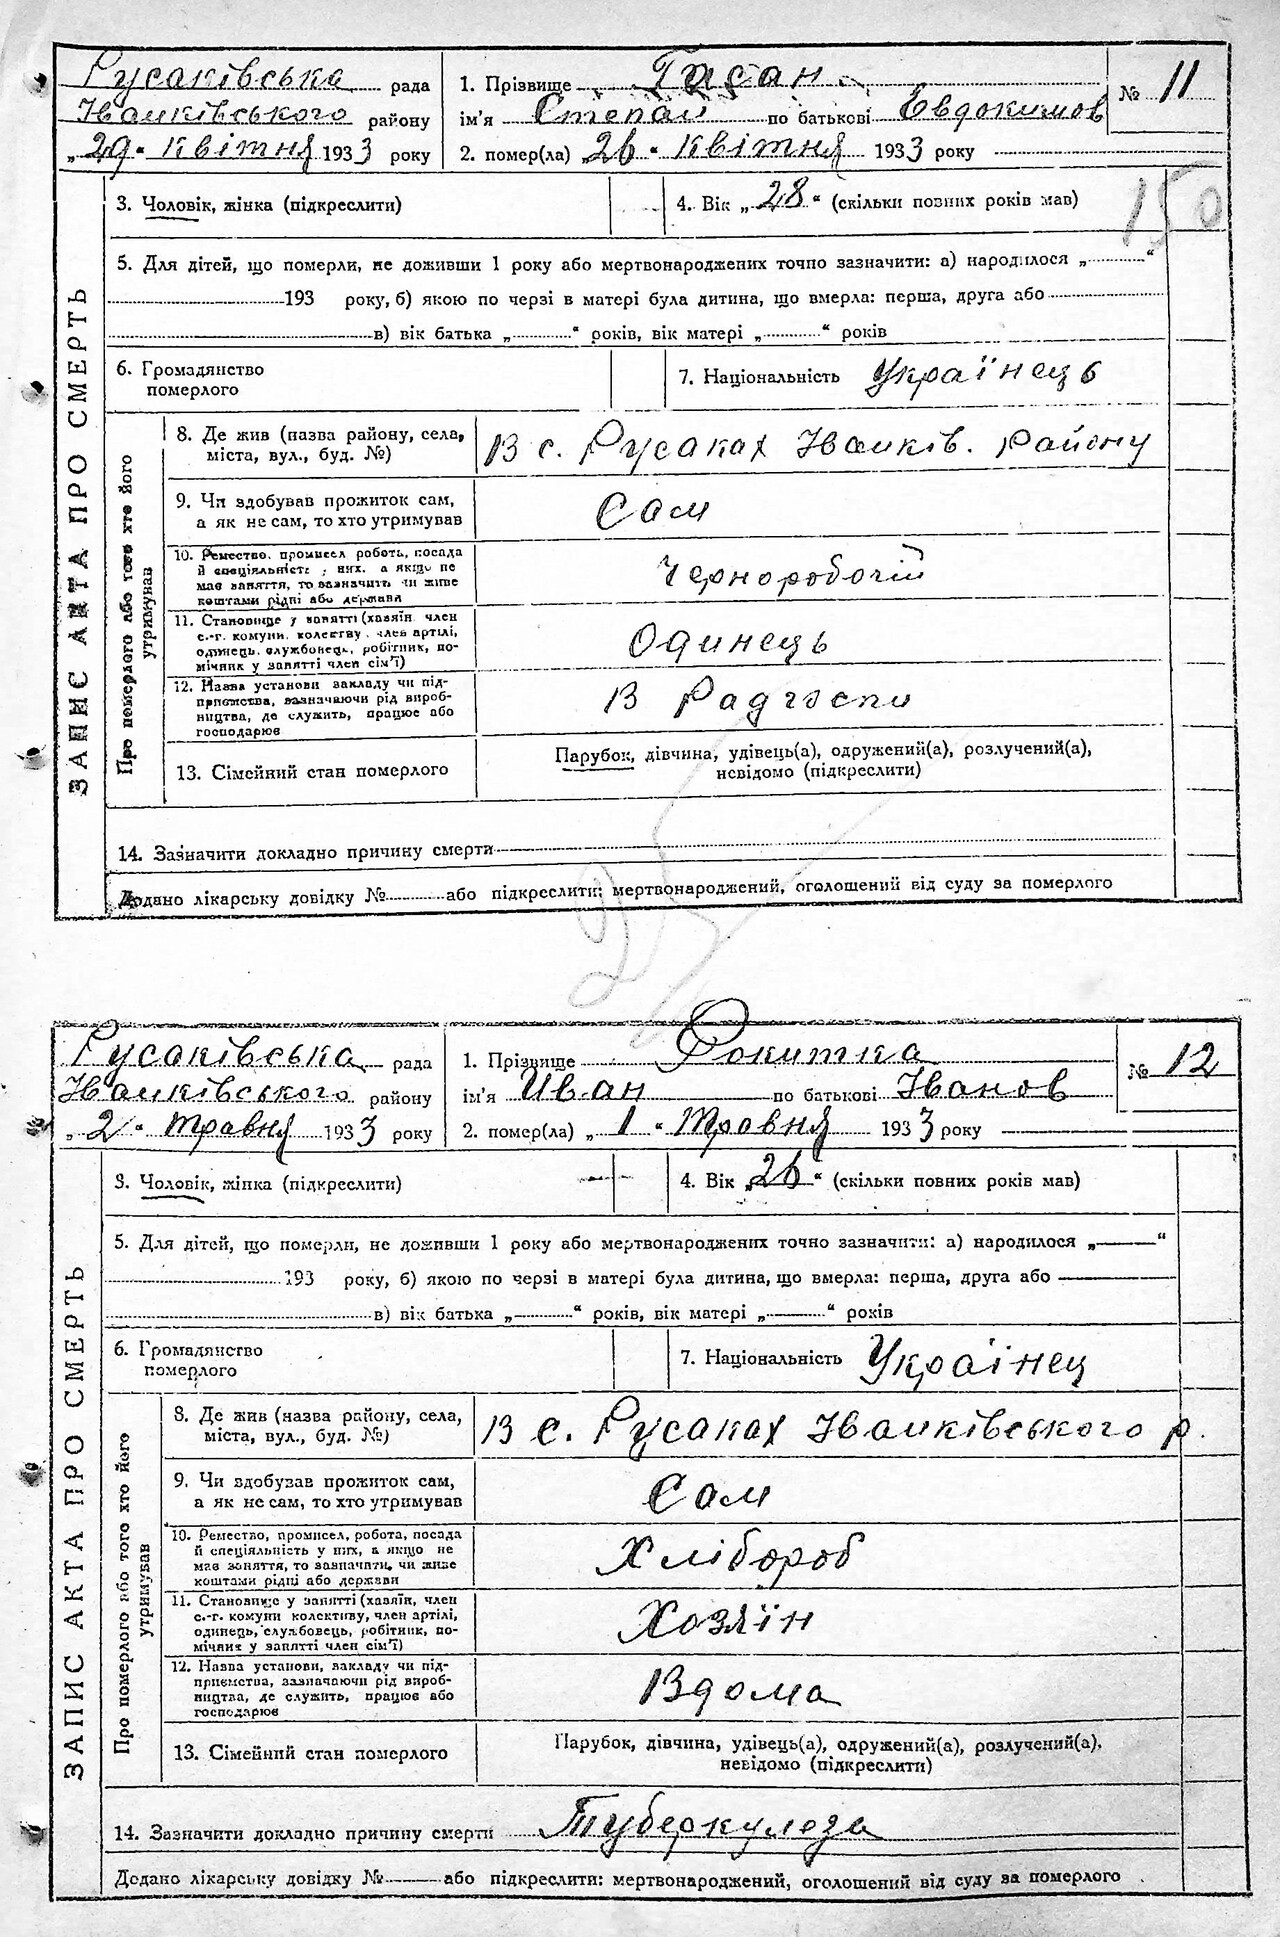 Русаківська рада
Іванківського району
„29“ квітня 1933 року
1. Прізвище Гасан
ім'я Степан по батькові Евдокимов
2. помер(ла) 26 “ квітня 1933 року
№ 11
150
ЗАПИС АКТА ПРО СМЕРТЬ
3. Чоловік, жінка (підкреслити)
4. Вік „28“ (скільки повних років мав)
5. Для дітей, що померли, не доживши 1 року або мертвонароджених точно зазначити: а) народилося „ “
193 року, б) якою по черзі в матері була дитина, що вмерла: перша, друга або
в) вік батька „ “ років, вік матері „ “ років
6. Громадянство
померлого
7. Національність Українець
Про померлого або того хто його
утримував
8. Де жив (назва району, села,
міста, вул., буд. №)
В с. Русаках Іванків. району
9. Чи здобував прожиток сам,
а як не сам, то хто утримував
Сам
10. Ремество, промисел, робота, посада
й спеціяльність у них, а якщо не
має заняття, то зазначить чи живе
коштами рідні або держави
Чорноробочій
11. Становище у занятті (хазяїн, член
с.-г. комуни, колективу, член артілі,
одинець, службовець, робітник, по-
мічник у занятті член сім'ї)
Одинець
12. Назва установи, закладу чи під-
приємства, зазначаючи рід вироб-
ництва, де служить, працює або
господарює
В Радгоспи
13. Сімейний стан померлого
Парубок, дівчина, удівець(а), одружений(а), розлучений(а),
невідомо (підкреслити)
14. Зазначити докладно причину смерти
Додано лікарську довідку № або підкреслити: мертвонароджений, оголошений від суду за померлого
Русаківська рада
Іванківського району
„2“ травня 1933 року
1. Прізвище Рокитка
ім'я Иван по батькові Іванов
2. помер(ла) „1“ Травня 1933 року
№ 12
ЗАПИС АКТА ПРО СМЕРТЬ
3. Чоловік, жінка (підкреслити)
4. Вік „26“ (скільки повних років мав)
5. Для дітей, що померли, не доживши 1 року або мертвонароджених точно зазначити: а) народилося „ “
193 року, б) якою по черзі в матері була дитина, що вмерла: перша, друга або
в) вік батька „ “ років, вік матері „ “ років
6. Громадянство
померлого
7. Національність Українец
Про померлого або того хто його
утримував
8. Де жив (назва району, села,
міста, вул., буд. №)
В с. Русаках Іванківського р.
9. Чи здобував прожиток сам,
а як не сам, то хто утримував
Сам
10. Ремество, промисел, робота, посада
й спеціяльність у них, а якщо не
має заняття, то зазначати, чи живе
коштами рідні або держави
Хлібороб
11. Становище у занятті (хазяїн, член
с.-г. комуни колективу, член артілі,
одинець, службовець, робітник, по-
мічник у занятті член сім'ї)
Хозяїн
12. Назва установи, закладу чи під-
приємства, зазначаючи рід вироб-
ництва, де служить, працює або
господарює
Вдома
13. Сімейний стан померлого
Парубок, дівчина, удівець(а), одружений(а), розлучений(а),
невідомо (підкреслити)
14. Зазначити докладно причину смерти Туберкулоза
Додано лікарську довідку № або підкреслити: мертвонароджений, оголошений від суду за померлого